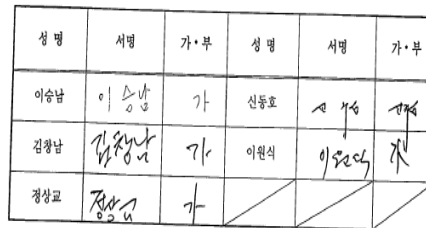 성명 서명 가·부 성명 서명 가·부
이승남 이승남 가 신동호
김창남 김창남 가 이원식 가
정상교 정상교 가